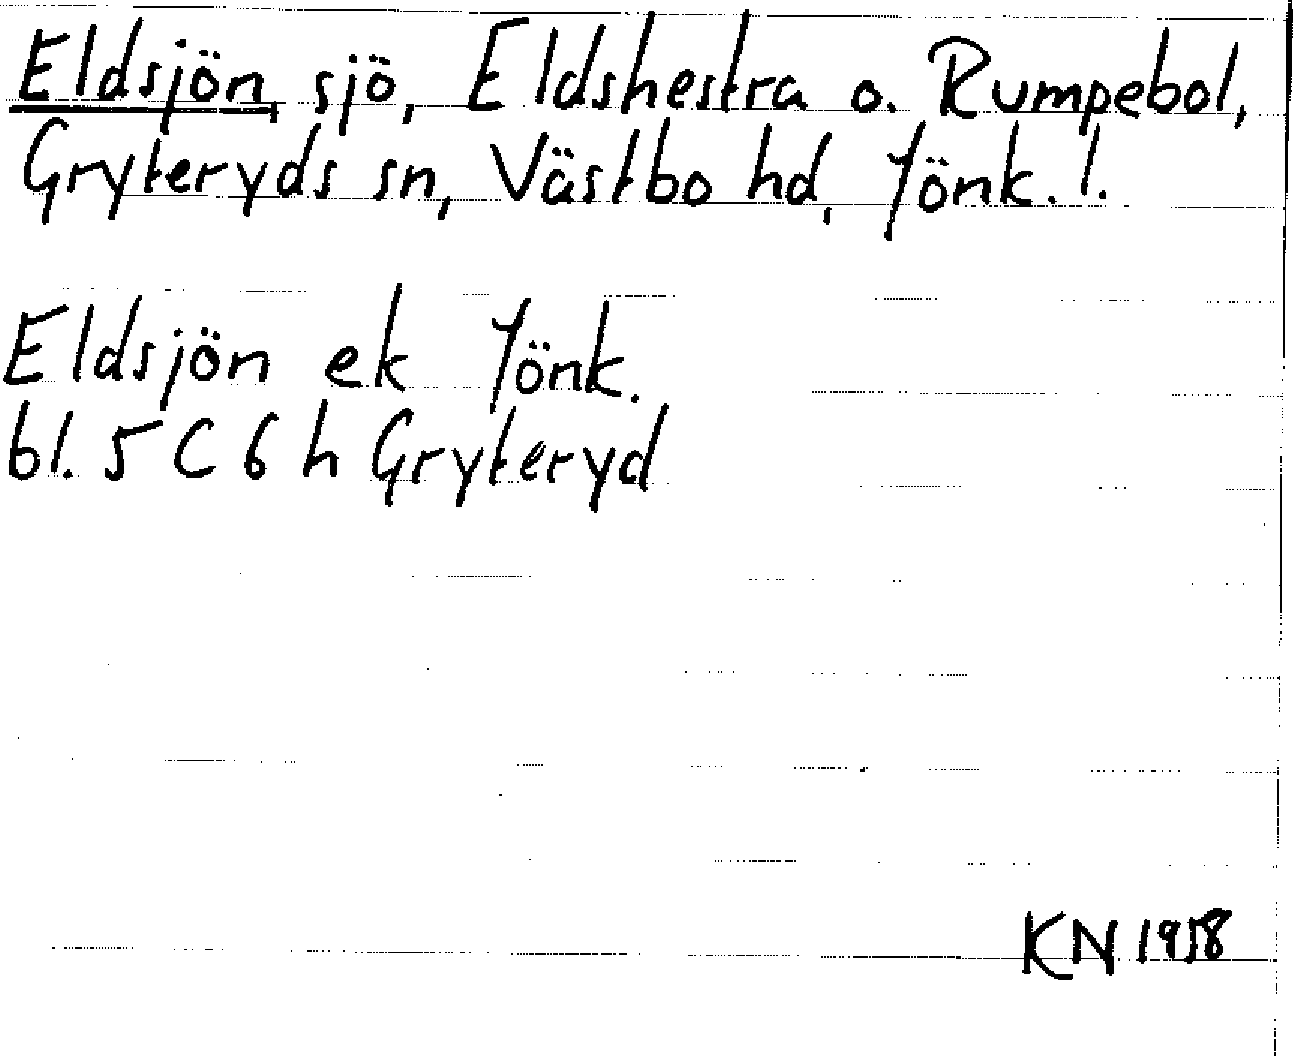 Eldsjön, sjö, Eldshestra o. Rumpebol,
Gryteryds sn, Västbo hd, Jönk. l.
Eldsjön ek Jönk.
bl. 5 C 6 h Gryteryd
KN 1958